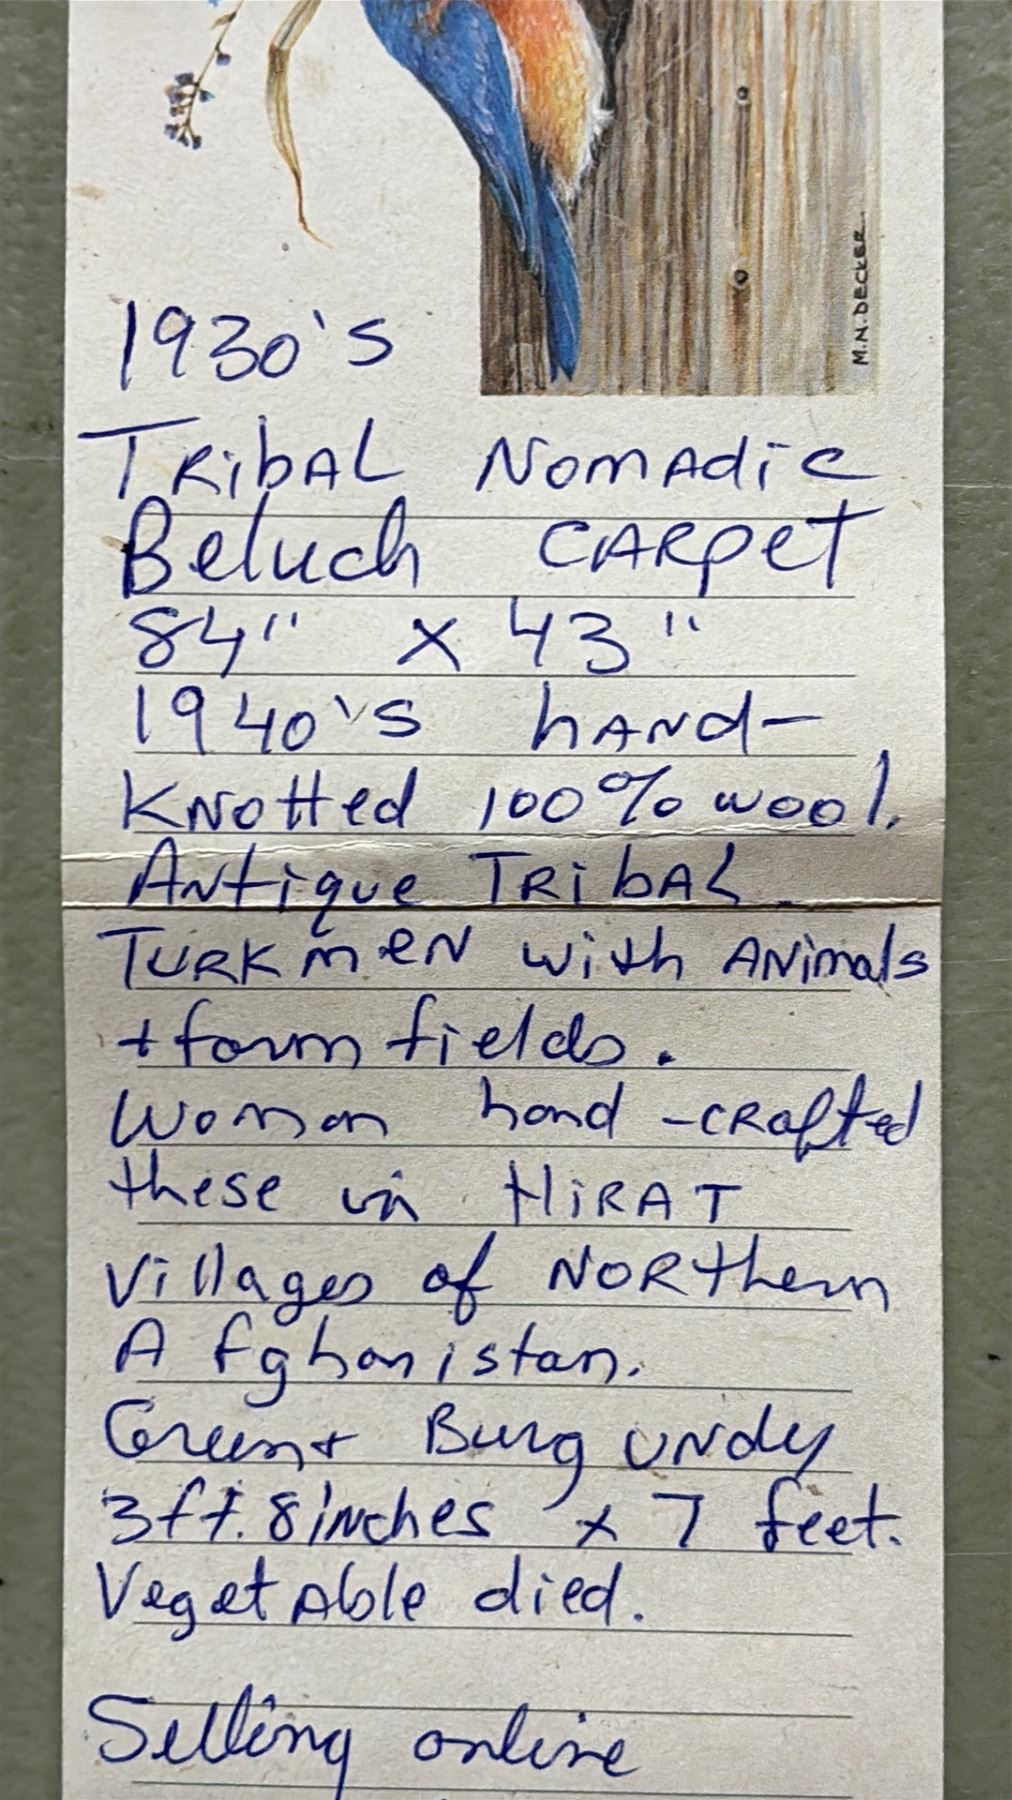 M.N. DECKER
1930's
TRibAL NomAdic
Beluch CARpet
84" x 43"
1940's hAND-
KNotted 100% wool.
ANtique TRibAL.
TURKmeN with ANimals
+ farm fields.
Woman hand-cRafted
these in HiRAT
Villages of NORthern
Afghanistan.
Green + Burg UNdy
3ft. 8 iNches x 7 feet.
VegetAble died.
Selling online